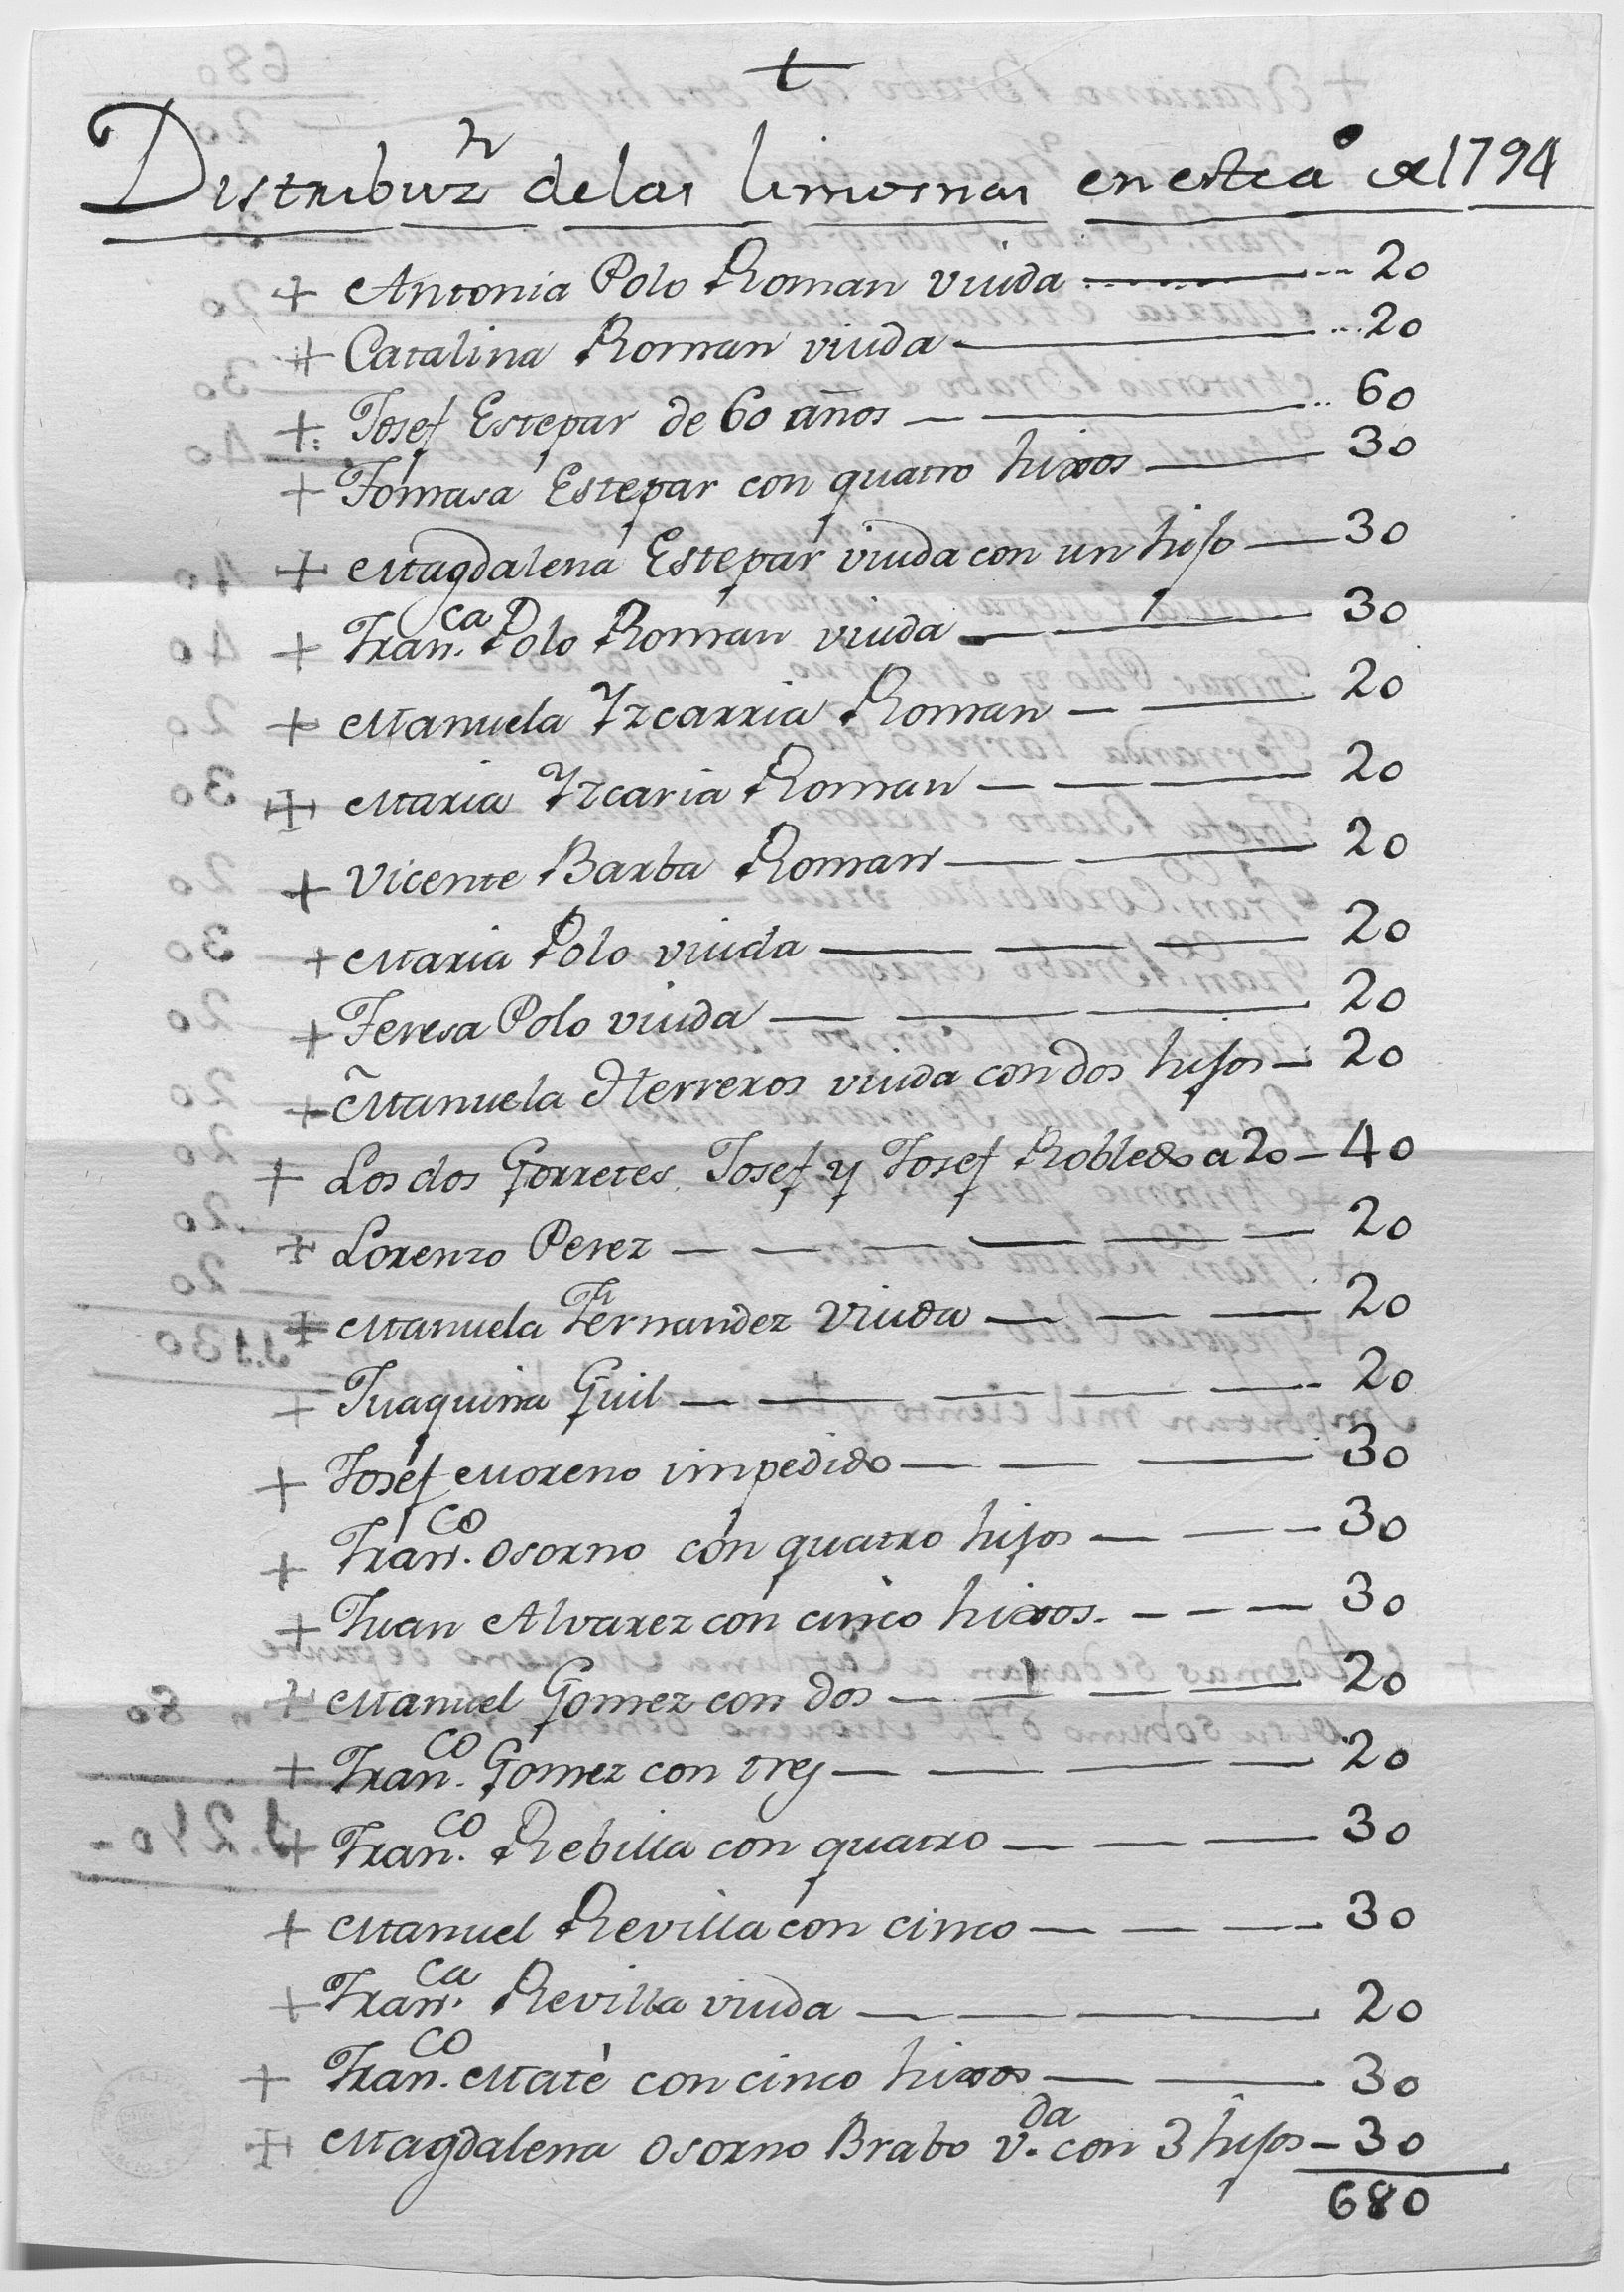 +
Distribuz.n de las limosnas en este a.o de 1794
+ Antonia Polo Roman viuda 20
+ Catalina Roman viuda 20
+ Josef Estepar de 60 años 60
+ Tomasa Estepar con quatro hixos 30
+ Magdalena Estepar viuda con un hijo 30
+ Fran.ca Polo Roman viuda 30
+ Manuela Yzcarria Roman 20
+ Maria Yzcaria Roman 20
+ Vicente Barba Roman 20
+ Maria Polo viuda 20
+ Teresa Polo viuda 20
+ Manuela Herreros viuda con dos hijos 20
+ Los dos Gorretes Josef y Josef Robledo a 20 40
+ Lorenzo Perez 20
+ Manuela Fernandez Viuda 20
+ Juaquina Guil 20
+ Josef Moreno impedido 30
+ Fran.co Osorno con quatro hijos 30
+ Juan Alvarez con cinco hixos 30
+ Manuel Gomez con dos 20
+ Fran.co Gomez con tres 20
+ Fran.co Rebilla con quatro 30
+ Manuel Revilla con cinco 30
+ Fran.ca Revilla viuda 20
+ Fran.co Matè con cinco hixos 30
+ Magdalena Osorno Brabo v.da con 3 hijos 30
680